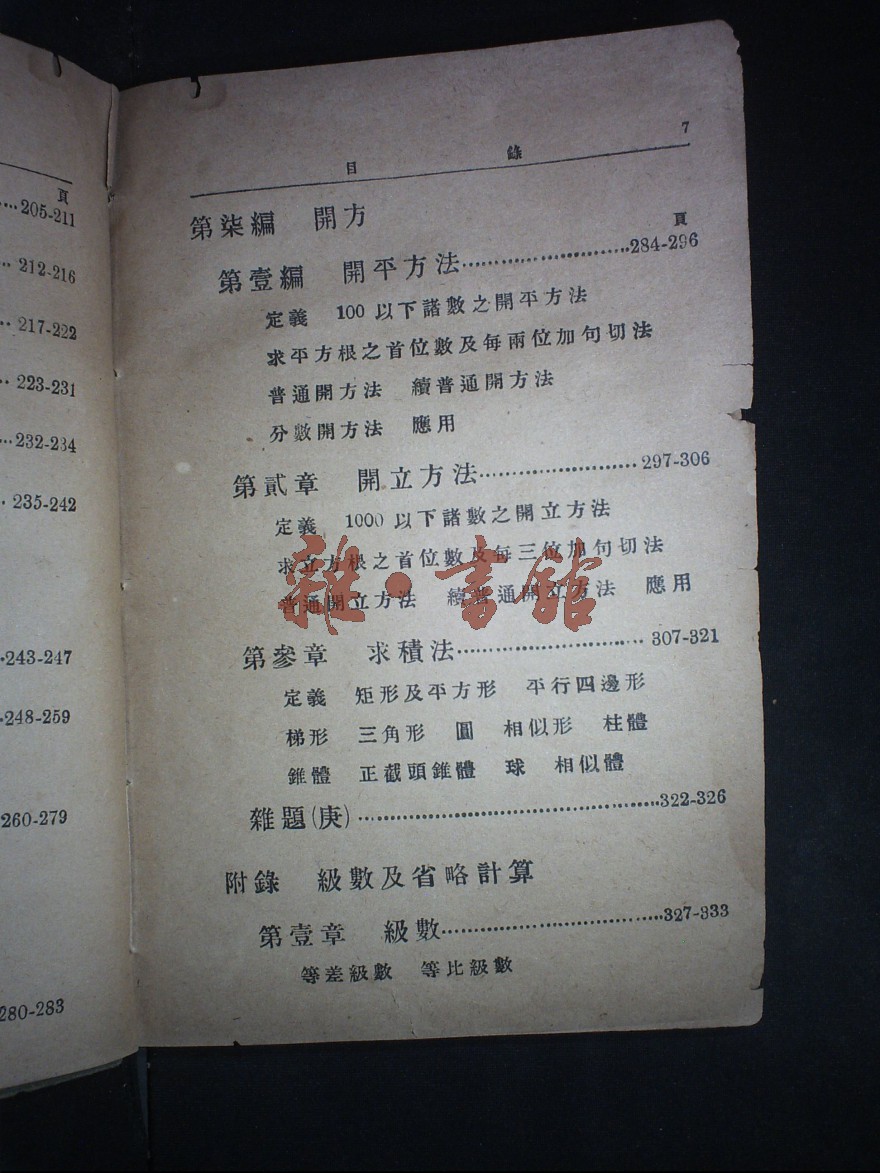 頁
205-211
212-216
217-222
223-231
232-234
235-242
243-247
248-259
260-279
280-283
目 錄 7
第柒編 開方
頁
第壹編 開平方法 284-296
定義 100以下諸數之開平方法
求平方根之首位數及每兩位加句切法
普通開方法 續普通開方法
分數開方法 應用
第貳章 開立方法 297-306
定義 1000以下諸數之開立方法
求立方根之首位數及每三位加句切法
普通開立方法 續普通開立方法 應用
雜·書館
第參章 求積法 307-321
定義 矩形及平方形 平行四邊形
梯形 三角形 圓 相似形 柱體
錐體 正截頭錐體 球 相似體
雜題(庚) 322-326
附錄 級數及省略計算
第壹章 級數 327-333
等差級數 等比級數